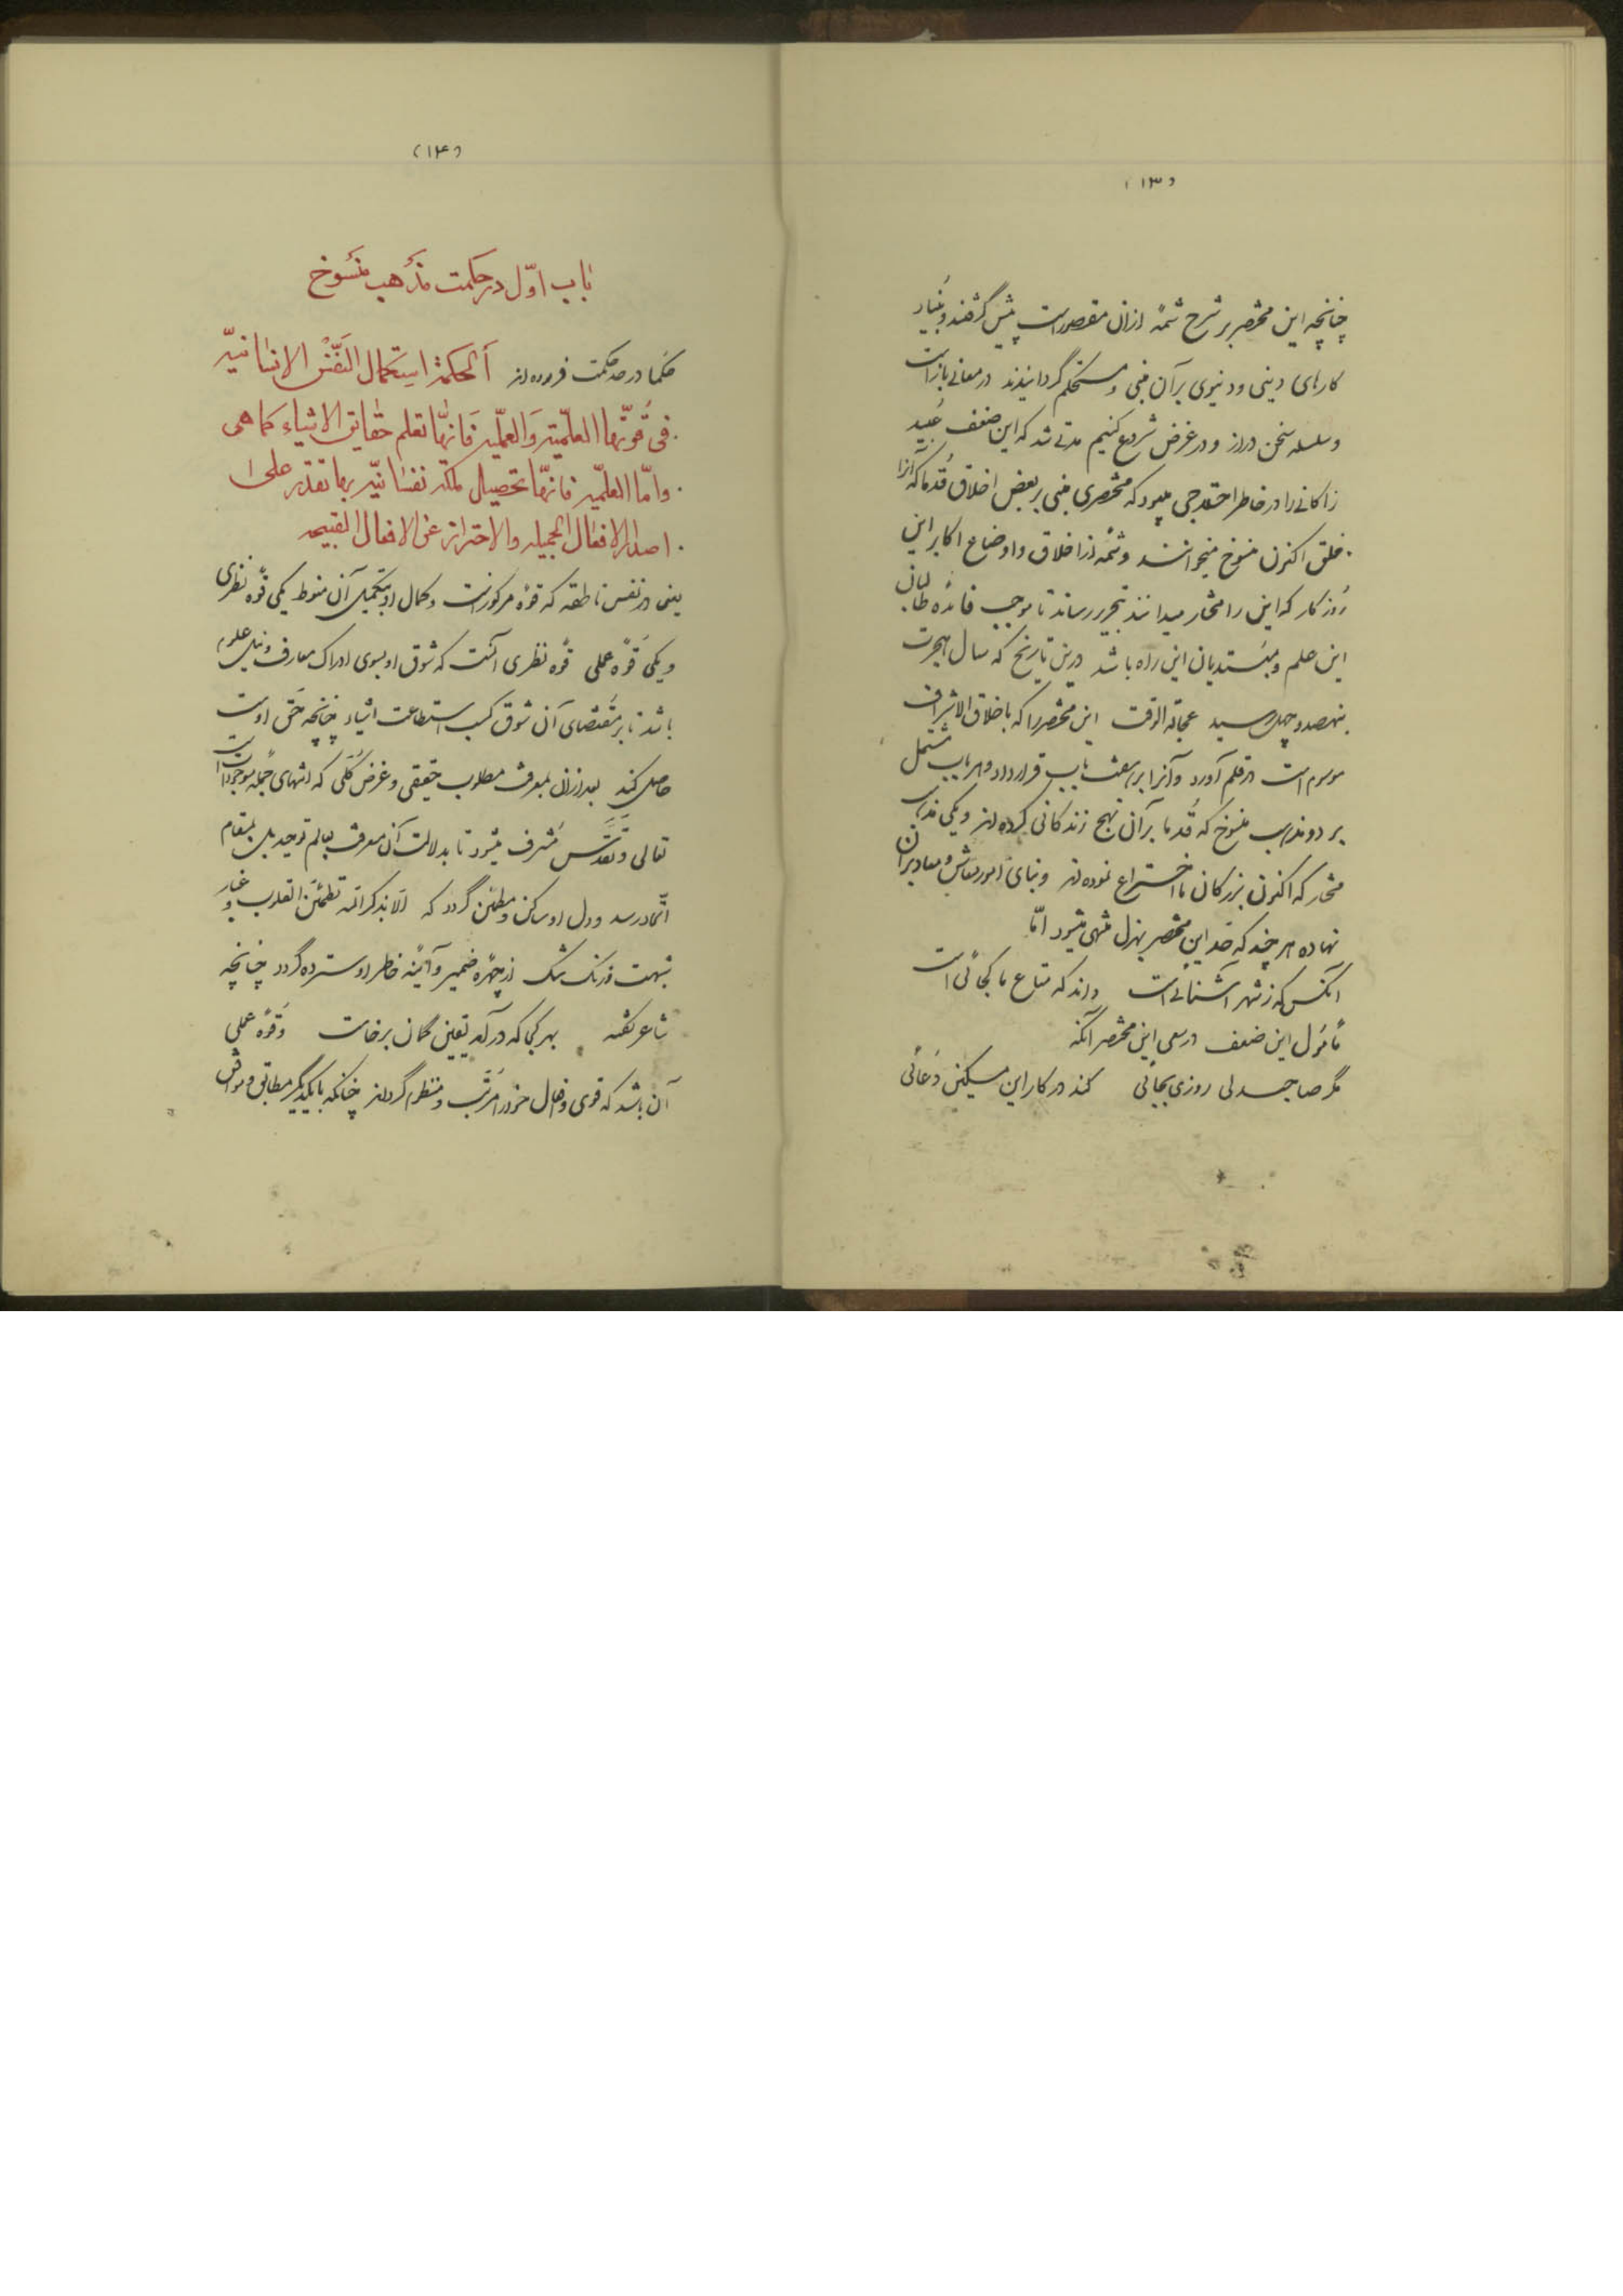 (۱۳)
چنانچه این مختصر بر شرح شمهٔ ازان مقصور است پیش گرفتند و بنیاد
کارهای دینی و دنیوی بر آن مبنی و مستحکم گردانیدند در معانی باز است
و سلسله سخن دراز و در غرض شروع کنیم مدتی شد که این ضعیف عبید
زاکانی را در خاطر اختلاجی میبود که مختصری مبنی بر بعض اخلاق قدما که آنرا
خلق اکنون منسوخ میخوانند و شمهٔ از اخلاق و اوضاع اکابر این
روزگار که این را مختار میدانند بتحریر رساند تا موجب فائده طالبان
این علم و مبتدیان این راه باشد درین تاریخ که سال هجرت
بهفصد و چهل رسید عجالة الوقت این مختصر را که باخلاق الاشراف
موسوم است در قلم آورد و آنرا بر هفت باب قرار داد و هر باب مشتمل
بر دو مذهب منسوخ که قدما بر آن نهج زندگانی کرده‌اند و یکی مذهب
مختار که اکنون بزرگان ما اختراع نموده‌اند و بنای امور معاش و معاد بر آن
نهاده هر چند که حد این مختصر بهزل منتهی میشود امّا
آنکس که ز شهر آشنائی است داند که متاع ما کجائی است
مأمول این ضعیف در سعی این مختصر آنکه
مگر صاحبدلی روزی بجائی کند در کار این مسکین دعائی
(۱۴)
باب اوّل در حکمت مذهب منسوخ
حکما در حد حکمت فرموده‌اند أَلحکمة استکمال النَّفْس الانسانیّه
فی قُوّتها العلمیّة وَالعملیّه فَانهّا تعلم حقایق الاشیاء کما هی
وامّا العلمیّه فانهّا تحصیل ملکه نفسانیّه بها تقدر علی
اصدار الافعال الجمیله والاحتراز عن الافعال القبیحه
یعنی در نفس ناطقه که قوهٔ مرکوز است و کمال او بتکمیل آن منوط یکی قوّه نظری
و یکی قوّه عملی قوّه نظری آنست که شوق او بسوی ادراک معارف و نیل علوم
باشد تا بر مقتضای آن شوق کسب استطاعت اشیاء چنانچه حق اوست
حاصل کند بعد ازان بمعرفت مطلوب حقیقی و غرض کلّی که انتهای جمله موجودات است
تعالی و تقدّس مشرف میشود تا بدلالت آن معرفت بعالم توحید بل بمقام
اتّحاد رسد و دل او ساکن و مطمئن گردد که الا بذکر الله تطمئن القلوب و غبار
شبهت و زنگ شک از چهره ضمیر و آینه خاطر او سترده گردد چنانچه
شاعر گفته بهر کجا که درآمد یقین گمان برخاست و قوّه عملی
آن باشد که قوی و افعال خود را مرتّب و منظوم گرداند چنانکه با یکدیگر مطابق و موافق